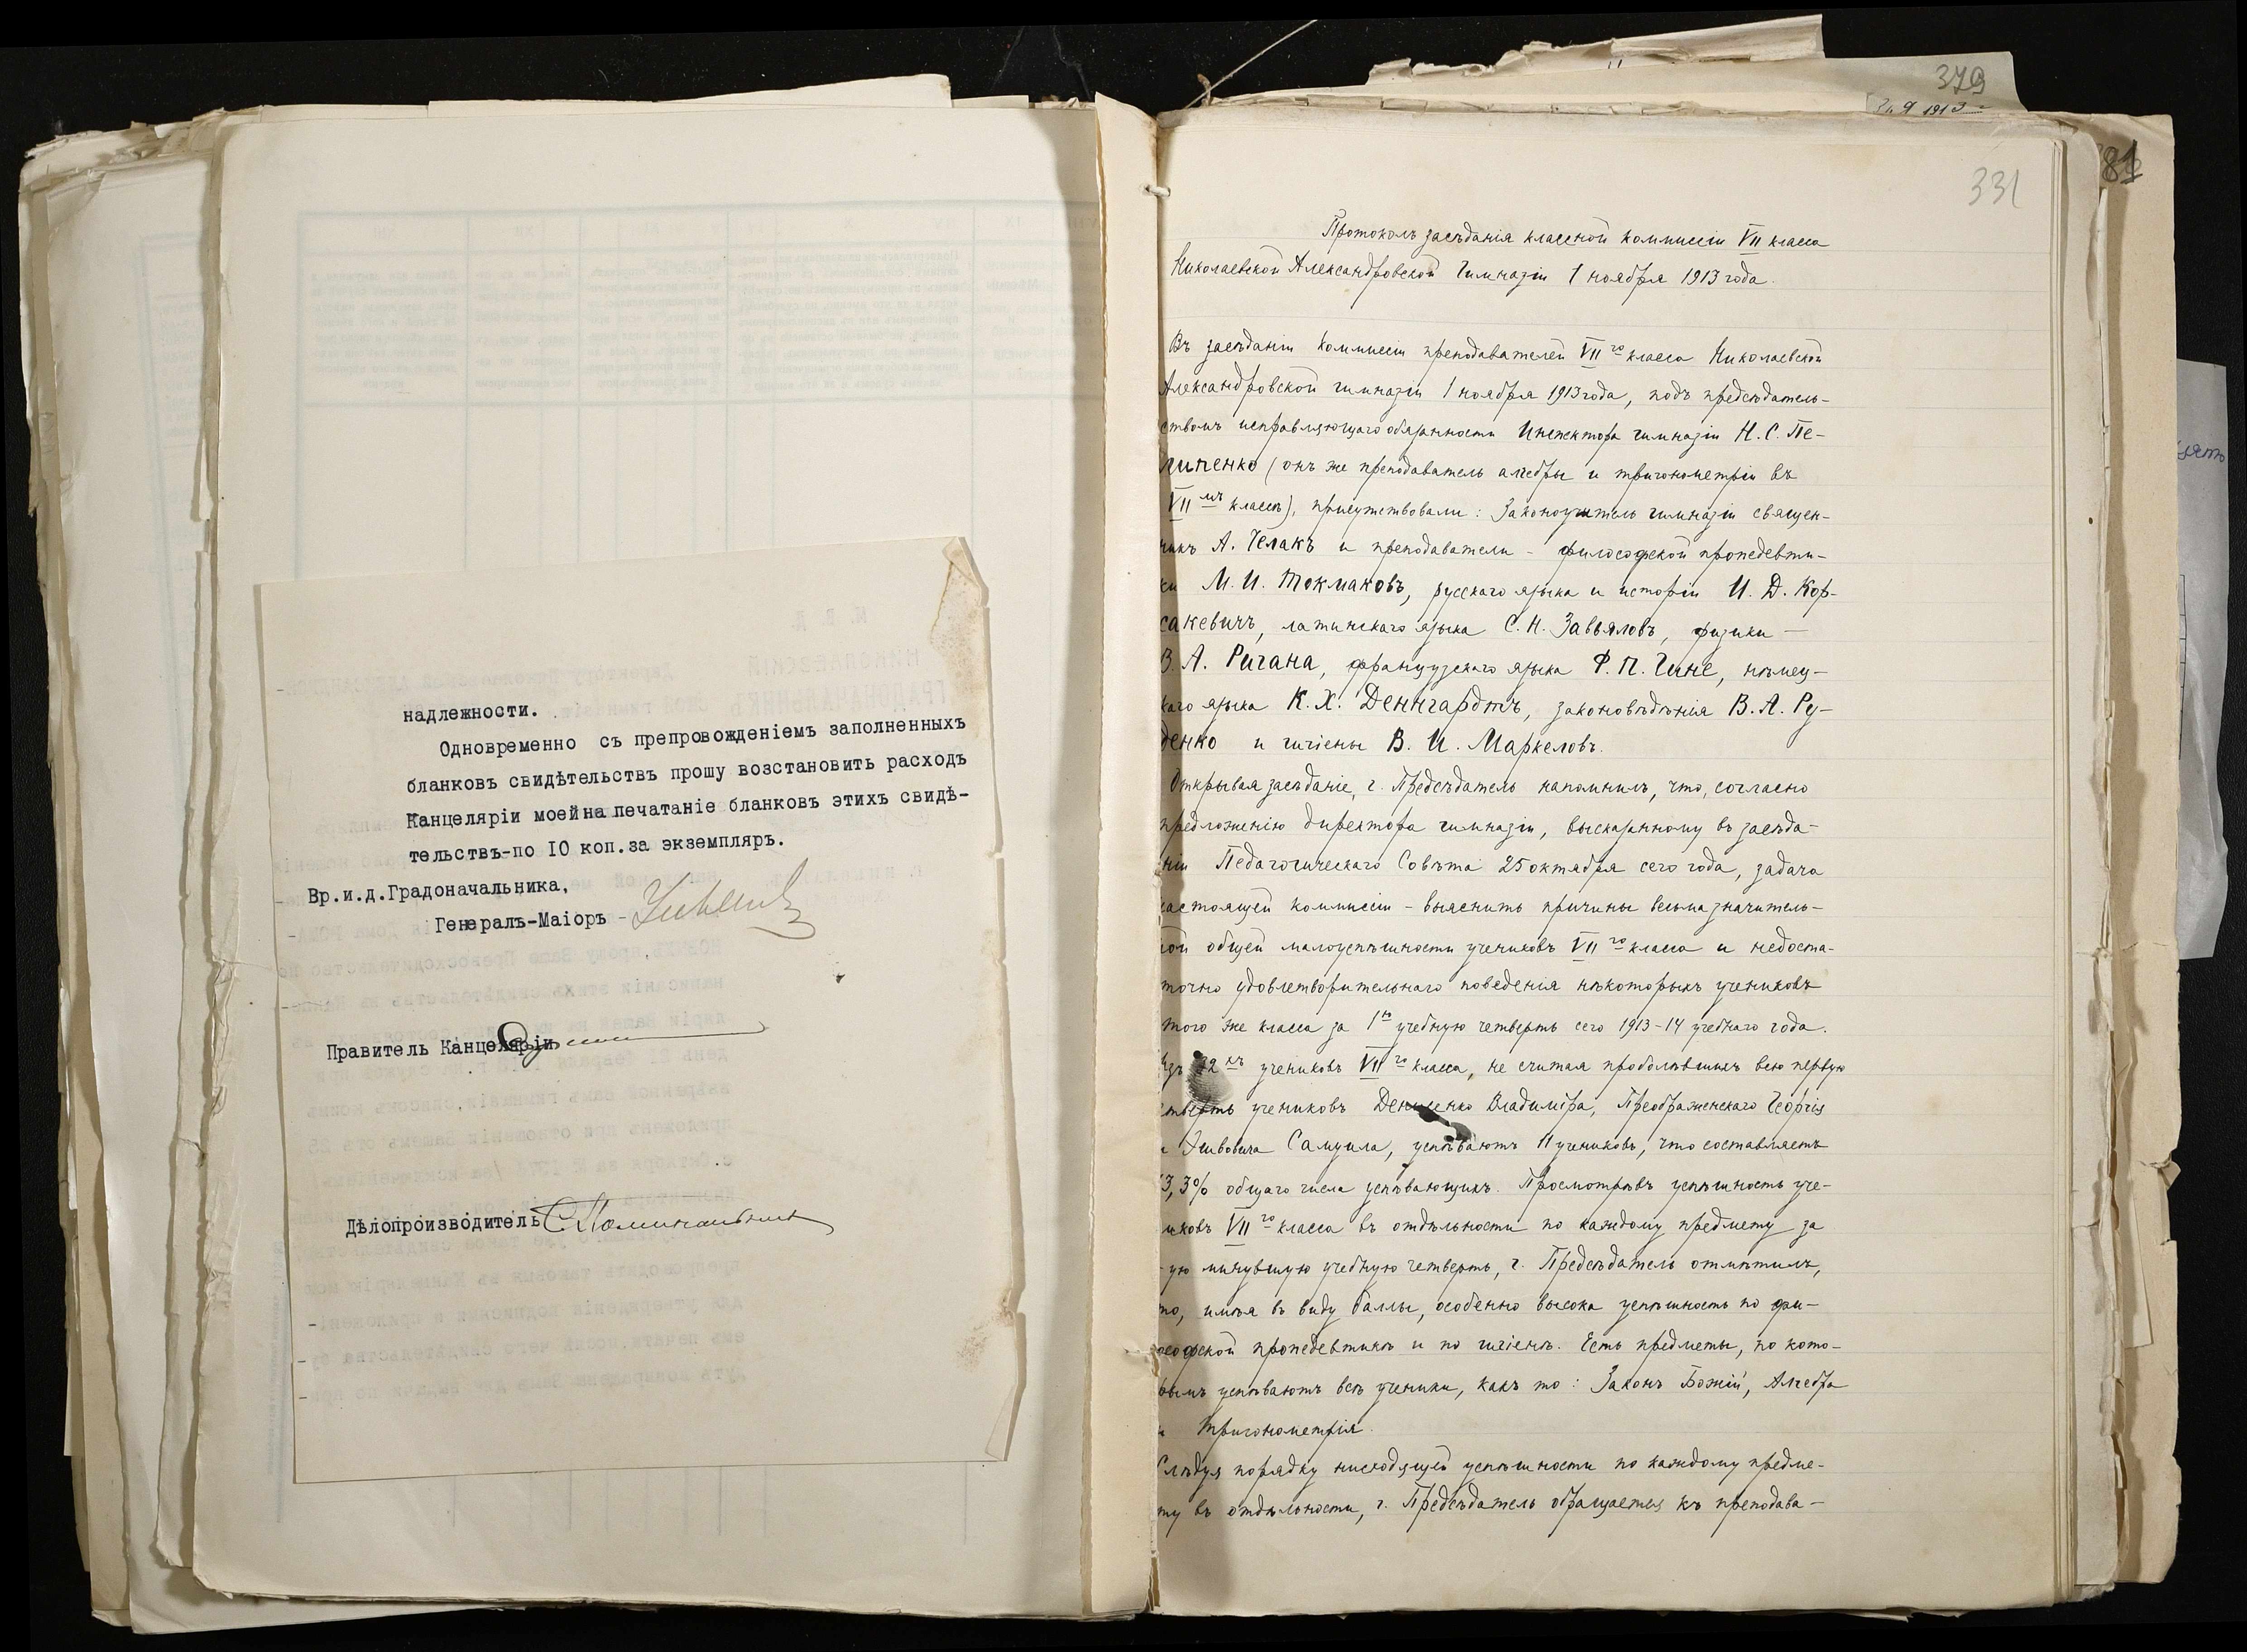 надлежности.
Одновременно съ препровожденіемъ заполненныхъ
бланковъ свидѣтельствъ прошу возстановить расходъ
Канцеляріи моей на печатаніе бланковъ этихъ свидѣ-
тельствъ-по IO коп.за экземпляръ.
Вр.и.д.Градоначальника,
Генералъ-Маіоръ -
Правитель Канцеляріи
Дѣлопроизводитель
379
1913
81
331
Протоколъ засѣданія классной коммиссіи VII класса
Николаевской Александровской Гимназіи 1 ноября 1913 года.
Въ засѣданіи коммиссіи преподавателей VII го класса Николаевской
Александровской гимназіи 1 ноября 1913 года, подъ предсѣдатель-
ствомъ исправляющаго обязанности Инспектора гимназіи Н. С. Пе-
липенко (онъ же преподаватель алгебры и тригонометріи въ
VII мъ классѣ), присутствовали: Законоучитель гимназіи священ-
никъ А. Челакъ и преподаватели - философской пропедевти-
ки М. И. Токмаковъ, русскаго языка и исторіи И. Д. Кор-
сакевичъ, латинскаго языка С. Н. Завьяловъ, физики -
В. А. Ригана, французскаго языка Ф. П. Гине, нѣмец-
каго языка К. Х. Деннгардтъ, законовѣдѣнія В. А. Ру-
денко и гигіены В. И. Маркеловъ.
Открывая засѣданіе, г. Предсѣдатель напомнилъ, что, согласно
предложенію директора гимназіи, высказанному въ засѣда-
ніи Педагогическаго Совѣта 25 октября сего года, задача
настоящей коммиссіи - выяснить причины весьма значитель-
ной общей малоуспѣшности учениковъ VII го класса и недоста-
точно удовлетворительнаго поведенія нѣкоторыхъ учениковъ
того же класса за 1 ю учебную четверть сего 1913-14 учебнаго года.
учениковъ VII го класса, не считая проболѣвшихъ всю первую
четверть учениковъ Денисенко Владиміра, Преображенскаго Георгія
и Самуила, успѣваютъ 11 учениковъ, что составляетъ
3,3% общаго числа успѣвающихъ. Просмотрѣвъ успѣшность уче-
никовъ VII го класса въ отдѣльности по каждому предмету за
-ую минувшую учебную четверть, г. Предсѣдатель отмѣтилъ,
что, имѣя въ виду баллы, особенно высока успѣшность по фи-
лософской пропедевтикѣ и по гигіенѣ. Есть предметы, по кото-
рымъ успѣваютъ всѣ ученики, какъ то: Законъ Божій, Алгебра
и Тригонометрія.
Слѣдуя порядку нисходящей успѣшности по каждому предме-
ту въ отдѣльности, г. Предсѣдатель обращается къ преподава-